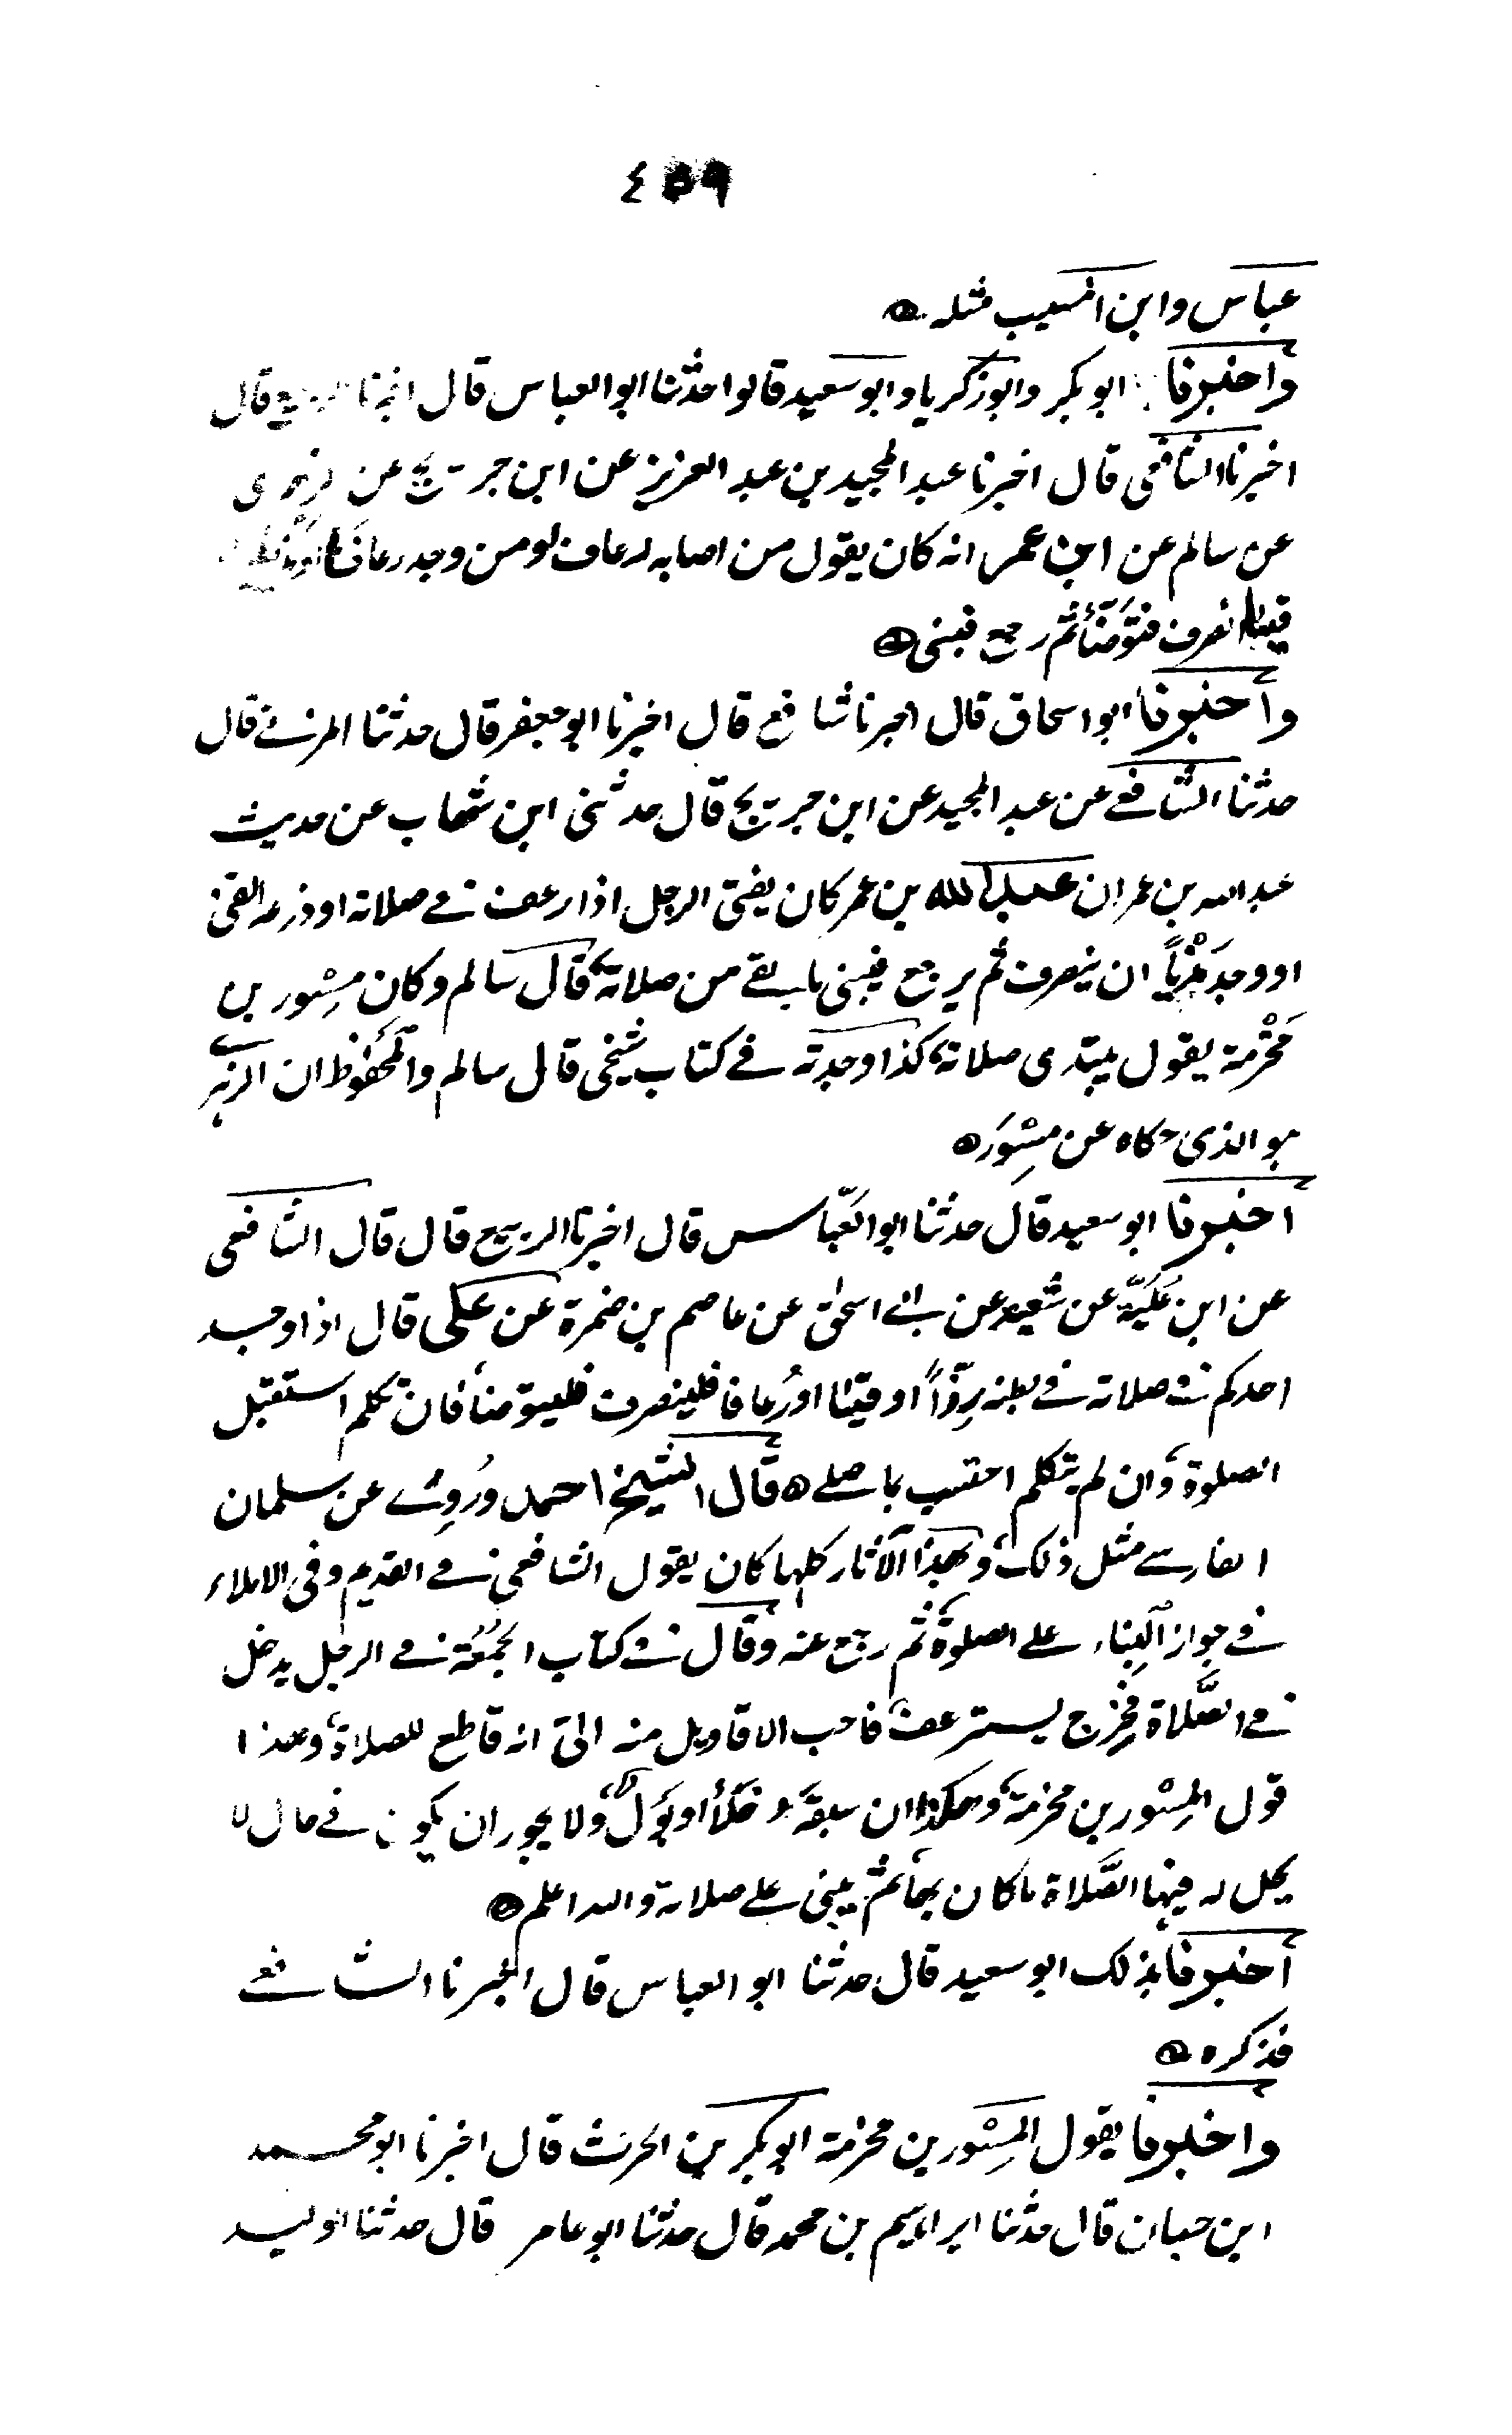 ٤٥٩
عباس وابن المسيب مثله
واخبرنا ابو بكر وابو زكريا وابو سعيد قالوا حدثنا ابو العباس قال اخبرنا الربيع قال
اخبرنا الشافعى قال اخبرنا عبد المجيد بن عبد العزيز عن ابن جريج عن الزهرى
عن سالم عن ابن عمر انه كان يقول من اصابه رعاف او من وجد رعافا او مذيا او
قيئا انصرف فتوضأ ثم رجع فبنى
وأخبرنا ابو اسحاق قال اخبرنا شافع قال اخبرنا ابو جعفر قال حدثنا المزنے قال
حدثنا الشافعے عن عبد المجيد عن ابن جريج قال حدثنى ابن شهاب عن حديث
عبد الله بن عمر ان عبد الله بن عمر كان يفتى الرجل اذا رعف فے صلاته او ذرعه القئ
او وجد مَذْياً ان ينصرف ثم يرجع فيبنى ما بقے من صلاته قال سالم وكان مِسْور بن
مَخْرمة يقول يبتدى صلاته كذا وجدته فے كتاب شيخى قال سالم والمحفوظ ان الزهرے
هو الذى حكاه عن مِسْوَر
أخبرنا ابو سعيد قال حدثنا ابو العَبّاس قال اخبرنا الربيع قال قال الشافعى
عن ابن عُلَيّة عن شعبة عن ابے اسحٰق عن عاصم بن ضمرة عن على قال اذا وجد
احدكم فے صلاته فے بطنه رِزّاً او قيئا او رُعافا فلينصرف فليتوضأ فان تكلم استقبل
الصلوة وان لم يتكلم احتسب بما صلے قال الشيخ احمد ورُوِے عن سلمان
الفارسے مثل ذلك وبهذا الآثار كلها كان يقول الشافعى فے القديم وفى الاملاء
فے جواز البِناء علے الصلوة ثم رجع عنه وقال فے كتاب الجُمُعَة فے الرجل يدخل
فے الصَّلاة فيخرج ليسترعف فاحب الاقاويل منه الىّ انه قاطع للصلاة وهذا
قول المِسْور بن مخرمة وهكذا ان سبقه خَلأ او بَوْل ولا يجوز ان يكون فے حال لا
يحل له فيها الصَّلاة ما كان بها ثم يبنى علے صلاته والله اعلم
أخبرنا بذلك ابو سعيد قال حدثنا ابو العباس قال اخبرنا الشافعے
فذكره
واخبرنا بقول المِسْور بن مخرمة ابو بكر بن الحرث قال اخبرنا ابو محمد
ابن حيان قال حدثنا ابراهيم بن محمد قال حدثنا ابو عامر قال حدثنا الوليد